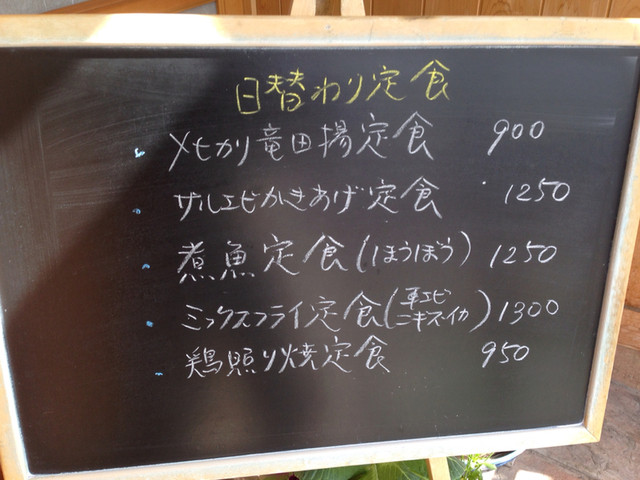 日替わり定食
メヒカリ竜田揚定食 900
ザルエビかきあげ定食 1250
煮魚定食(ほうぼう) 1250
ミックスフライ定食(車エビ ニギス・イカ) 1300
鶏照り焼定食 950